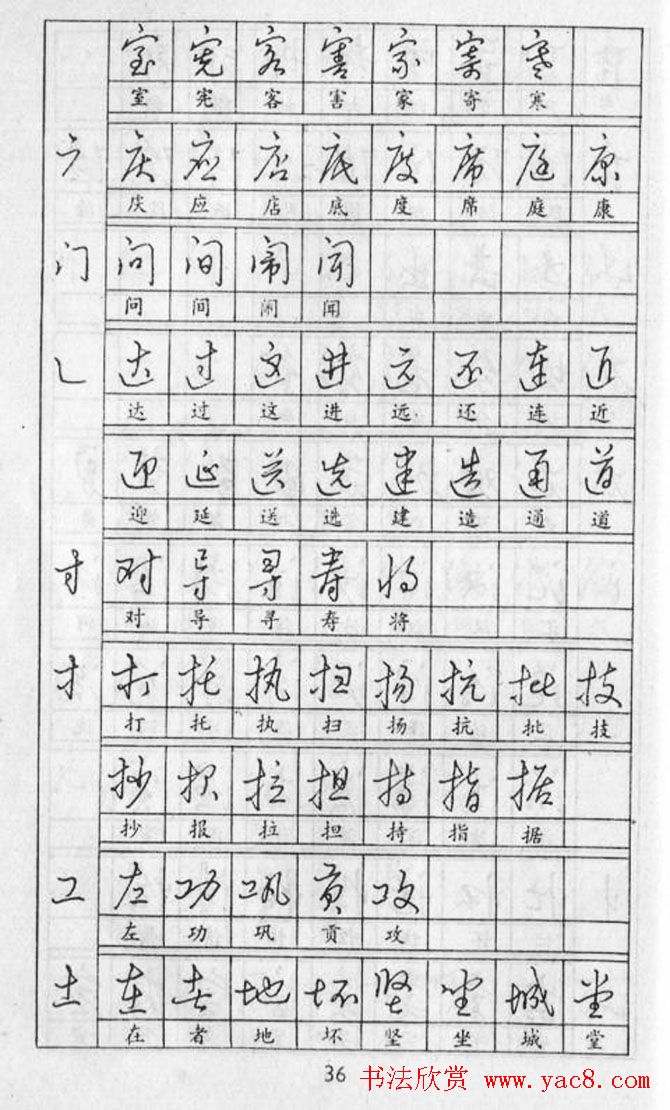 室 宪 客 害 家 寄 寒
室 宪 客 害 家 寄 寒
广 庆 应 店 底 度 席 庭 康
庆 应 店 底 度 席 庭 康
门 问 间 闹 闻
问 间 闹 闻
辶 达 过 这 进 远 还 连 近
达 过 这 进 远 还 连 近
迎 延 送 选 建 造 通 道
迎 延 送 选 建 造 通 道
寸 对 导 寻 寿 将
对 导 寻 寿 将
扌 打 托 执 扫 扬 抗 批 技
打 托 执 扫 扬 抗 批 技
抄 报 拉 担 持 指 据
抄 报 拉 担 持 指 据
工 左 功 巩 贡 攻
左 功 巩 贡 攻
土 在 者 地 坏 坚 坐 城 堂
在 者 地 坏 坚 坐 城 堂
36 书法欣赏 www.yac8.com